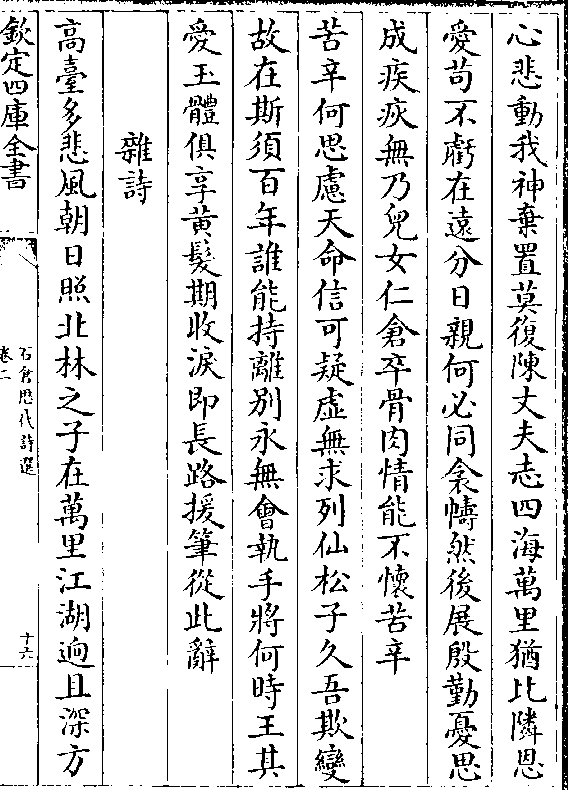 心悲動我神棄置莫復陳丈夫志四海萬里猶比隣恩
愛苟不虧在遠分日親何必同衾幬然後展殷勤憂思
成疾疢無乃兒女仁倉卒骨肉情能不懷苦辛
苦辛何思慮天命信可疑虛無求列仙松子久吾欺變
故在斯須百年誰能持離別永無會執手將何時王其
愛玉體俱享黄髮期收淚即長路援筆從此辭
雜詩
高臺多悲風朝日照北林之子在萬里江湖逈且深方
欽定四庫全書
石倉歷代詩選
卷二
十六